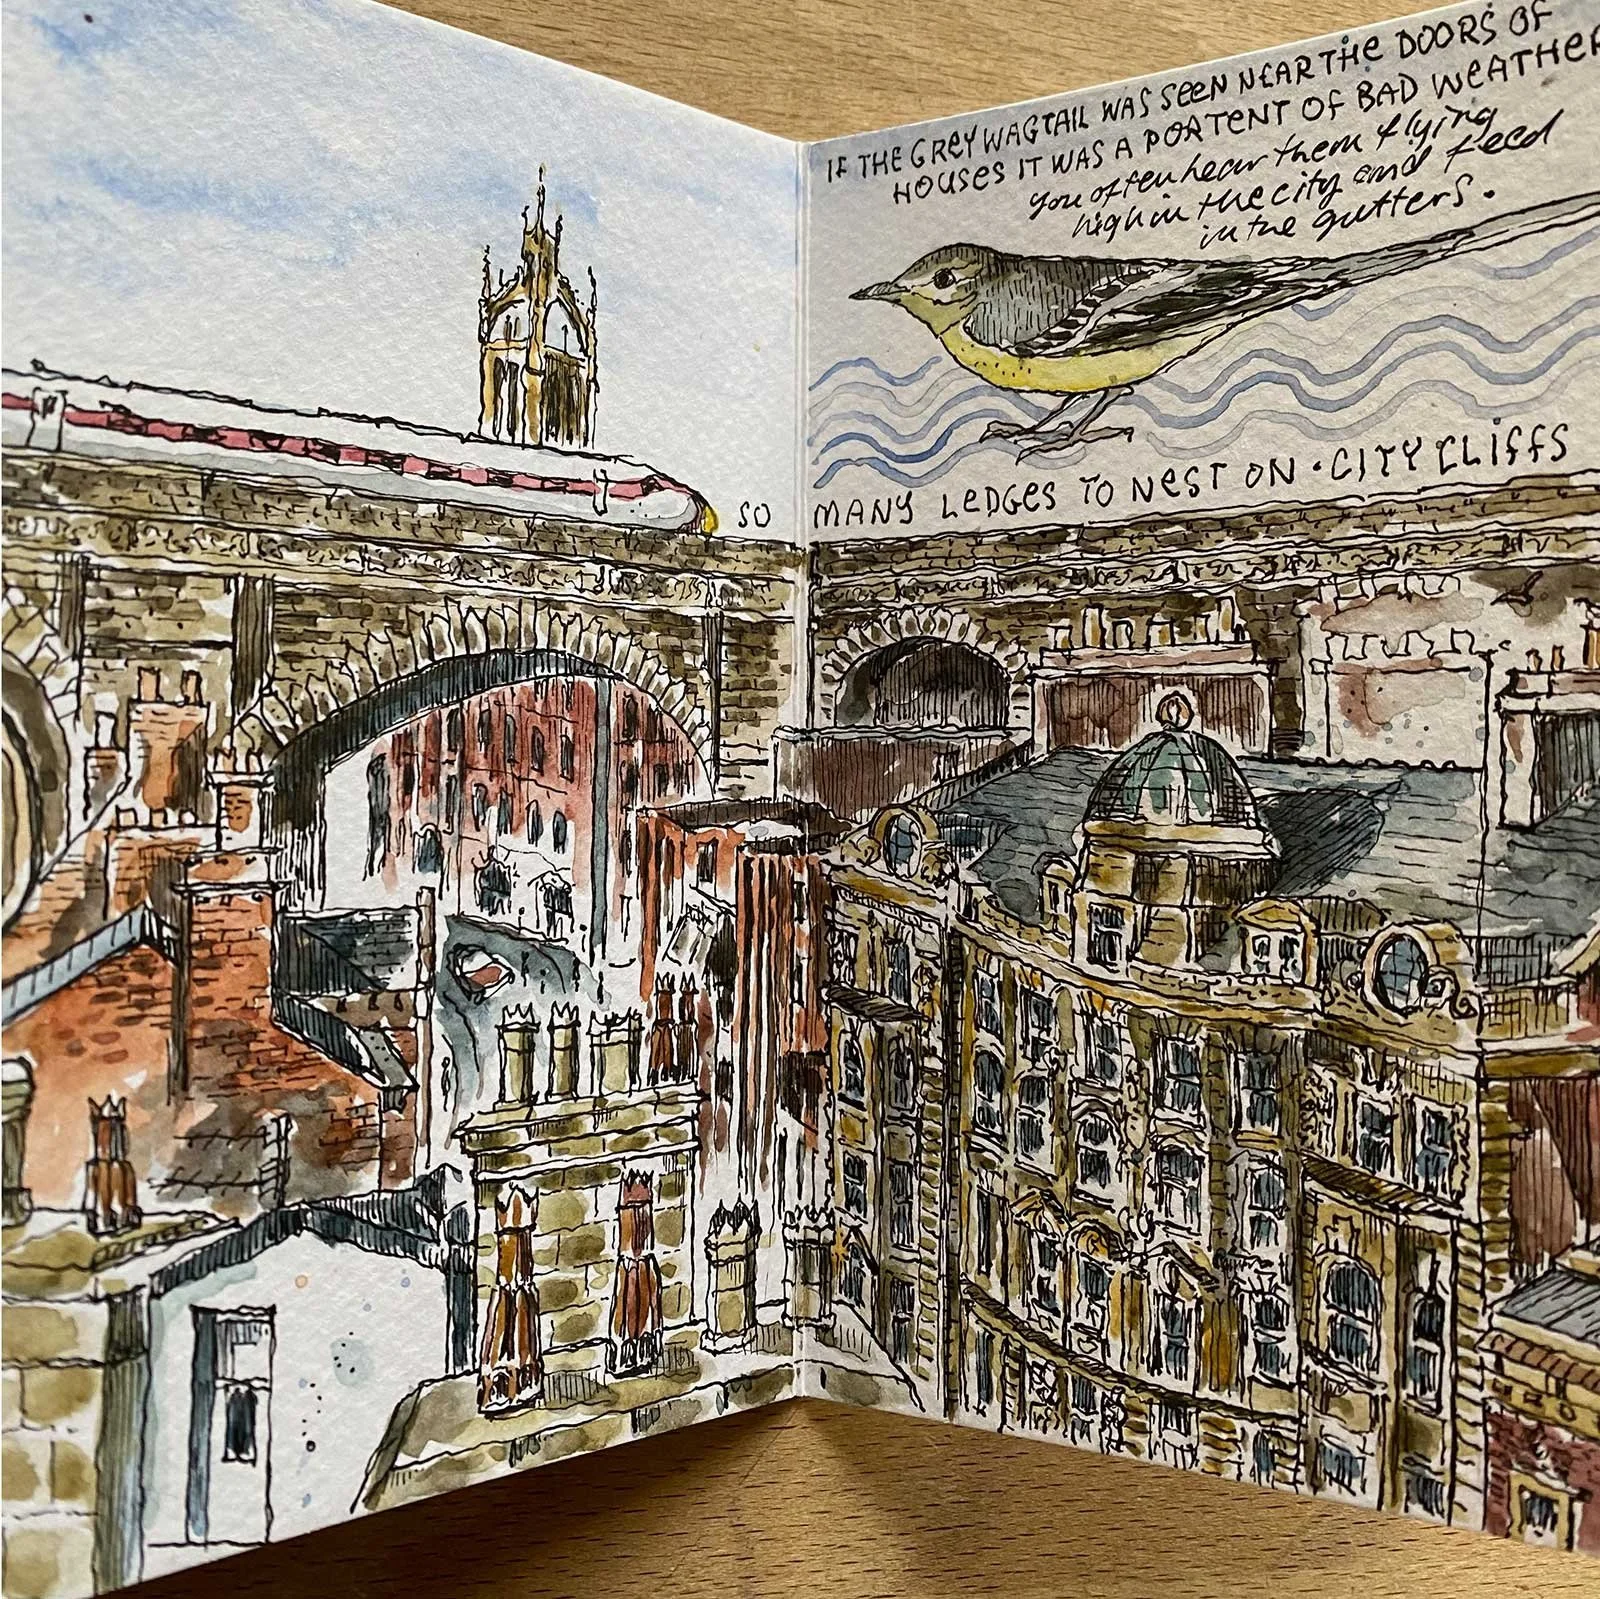 IF THE GREY WAGTAIL WAS SEEN NEAR THE DOORS OF
HOUSES IT WAS A PORTENT OF BAD WEATHER
you often hear them flying
high in the city and feed
in the gutters.
SO MANY LEDGES TO NEST ON · CITY CLIFFS